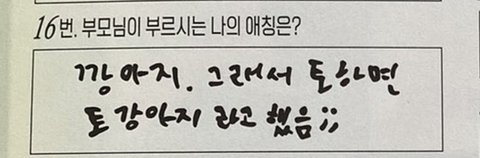 16번. 부모님이 부르시는 나의 애칭은?
깡아지. 그래서 토하면
토강아지 라고 했음;;